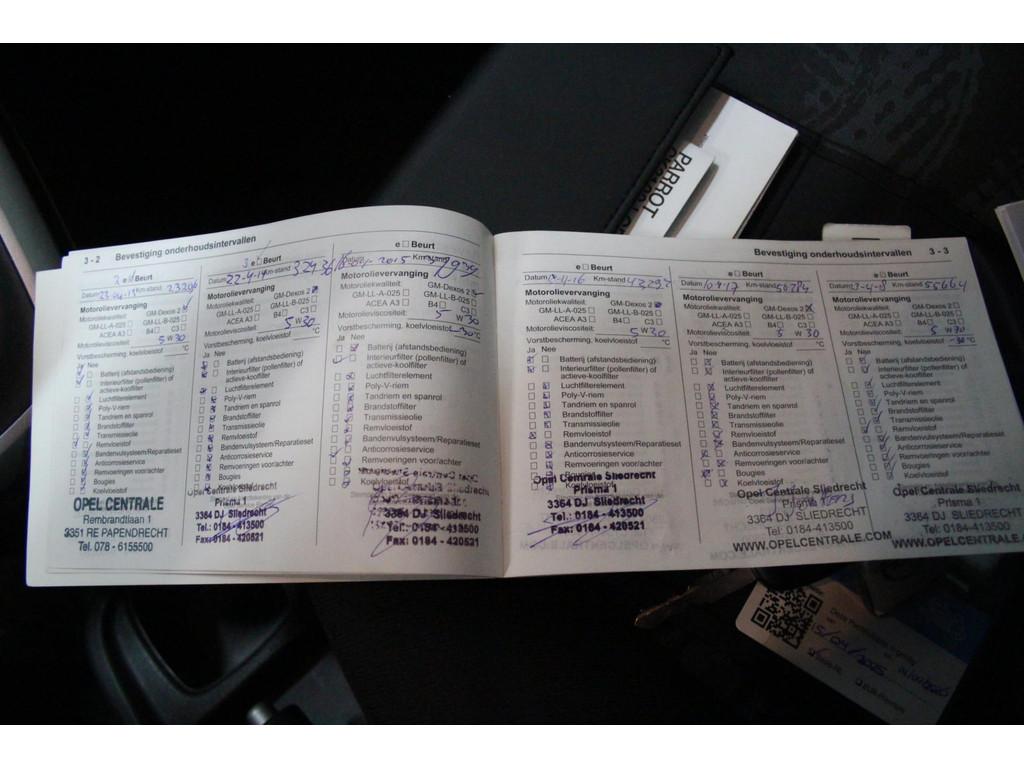 3 - 2 Bevestiging onderhoudsintervallen
2 e Beurt
Datum Km-stand 23206
Motorolievervanging
Motoroliekwaliteit: GM-Dexos 2
GM-LL-A-025 GM-LL-B-025
ACEA A3 B4 C3
Motorolieviscositeit: 5 W 30
Vorstbescherming, koelvloeistof °C
Ja Nee
Batterij (afstandsbediening)
Interieurfilter (pollenfilter) of
actieve-koolfilter
Luchtfilterelement
Poly-V-riem
Tandriem en spanrol
Brandstoffilter
Transmissieolie
Remvloeistof
Bandenvulsysteem/Reparatieset
Anticorrosieservice
Remvoeringen voor/achter
Bougies
Koelvloeistof
OPEL CENTRALE
Rembrandtlaan 1
3351 RE PAPENDRECHT
Tel. 078 - 6155500
3 e Beurt
Datum 22-4-14 Km-stand 32936
Motorolievervanging
Motoroliekwaliteit: GM-Dexos 2
GM-LL-A-025 GM-LL-B-025
ACEA A3 B4 C3
Motorolieviscositeit: 5 W 30
Vorstbescherming, koelvloeistof °C
Ja Nee
Batterij (afstandsbediening)
Interieurfilter (pollenfilter) of
actieve-koolfilter
Luchtfilterelement
Poly-V-riem
Tandriem en spanrol
Brandstoffilter
Transmissieolie
Remvloeistof
Bandenvulsysteem/Reparatieset
Anticorrosieservice
Remvoeringen voor/achter
Bougies
Opel Centrale Sliedrecht
Prisma 1
3364 DJ Sliedrecht
Tel.: 0184 - 413500
Fax: 0184 - 420521
e Beurt
2015 Km-stand
Motorolievervanging
Motoroliekwaliteit: GM-Dexos 2
GM-LL-A-025 GM-LL-B-025
ACEA A3 B4 C3
Motorolieviscositeit: 5 W 30
Vorstbescherming, koelvloeistof -30°C
Ja Nee
Batterij (afstandsbediening)
Interieurfilter (pollenfilter) of
actieve-koolfilter
Luchtfilterelement
Poly-V-riem
Tandriem en spanrol
Brandstoffilter
Transmissieolie
Remvloeistof
Bandenvulsysteem/Reparatieset
Anticorrosieservice
Remvoeringen voor/achter
Koelvloeistof
3364 DJ Sliedrecht
Tel.: 0184 - 413500
Fax: 0184 - 420521
Bevestiging onderhoudsintervallen 3 - 3
e Beurt
Datum Km-stand
Motorolievervanging
Motoroliekwaliteit: GM-Dexos 2
GM-LL-A-025 GM-LL-B-025
ACEA A3 B4 C3
Motorolieviscositeit: 5 W 30
Vorstbescherming, koelvloeistof °C
Ja Nee
Batterij (afstandsbediening)
Interieurfilter (pollenfilter) of
actieve-koolfilter
Luchtfilterelement
Poly-V-riem
Tandriem en spanrol
Brandstoffilter
Transmissieolie
Remvloeistof
Bandenvulsysteem/Reparatieset
Anticorrosieservice
Remvoeringen voor/achter
Bougies
Opel Centrale Sliedrecht
Prisma 1
3364 DJ Sliedrecht
Tel.: 0184 - 413500
Fax: 0184 - 420521
e Beurt
Datum Km-stand
Motorolievervanging
Motoroliekwaliteit: GM-Dexos 2
GM-LL-A-025 GM-LL-B-025
ACEA A3 B4 C3
Motorolieviscositeit: 5 W 30
Vorstbescherming, koelvloeistof °C
Ja Nee
Batterij (afstandsbediening)
Interieurfilter (pollenfilter) of
actieve-koolfilter
Luchtfilterelement
Poly-V-riem
Tandriem en spanrol
Brandstoffilter
Transmissieolie
Remvloeistof
Bandenvulsysteem/Reparatieset
Anticorrosieservice
Remvoeringen voor/achter
Bougies
Koelvloeistof
Opel Centrale Sliedrecht
3364 DJ SLIEDRECHT
Tel: 0184-413500
WWW.OPELCENTRALE.COM
e Beurt
Datum Km-stand 55664
Motorolievervanging
Motoroliekwaliteit: GM-Dexos 2
GM-LL-A-025 GM-LL-B-025
ACEA A3 B4 C3
Motorolieviscositeit: 5 W 30
Vorstbescherming, koelvloeistof °C
Ja Nee
Batterij (afstandsbediening)
Interieurfilter (pollenfilter) of
actieve-koolfilter
Luchtfilterelement
Poly-V-riem
Tandriem en spanrol
Brandstoffilter
Transmissieolie
Remvloeistof
Bandenvulsysteem/Reparatieset
Anticorrosieservice
Remvoeringen voor/achter
Bougies
Koelvloeistof
Opel Centrale Sliedrecht
3364 DJ SLIEDRECHT
Tel: 0184-413500
WWW.OPELCENTRALE.
PARROT